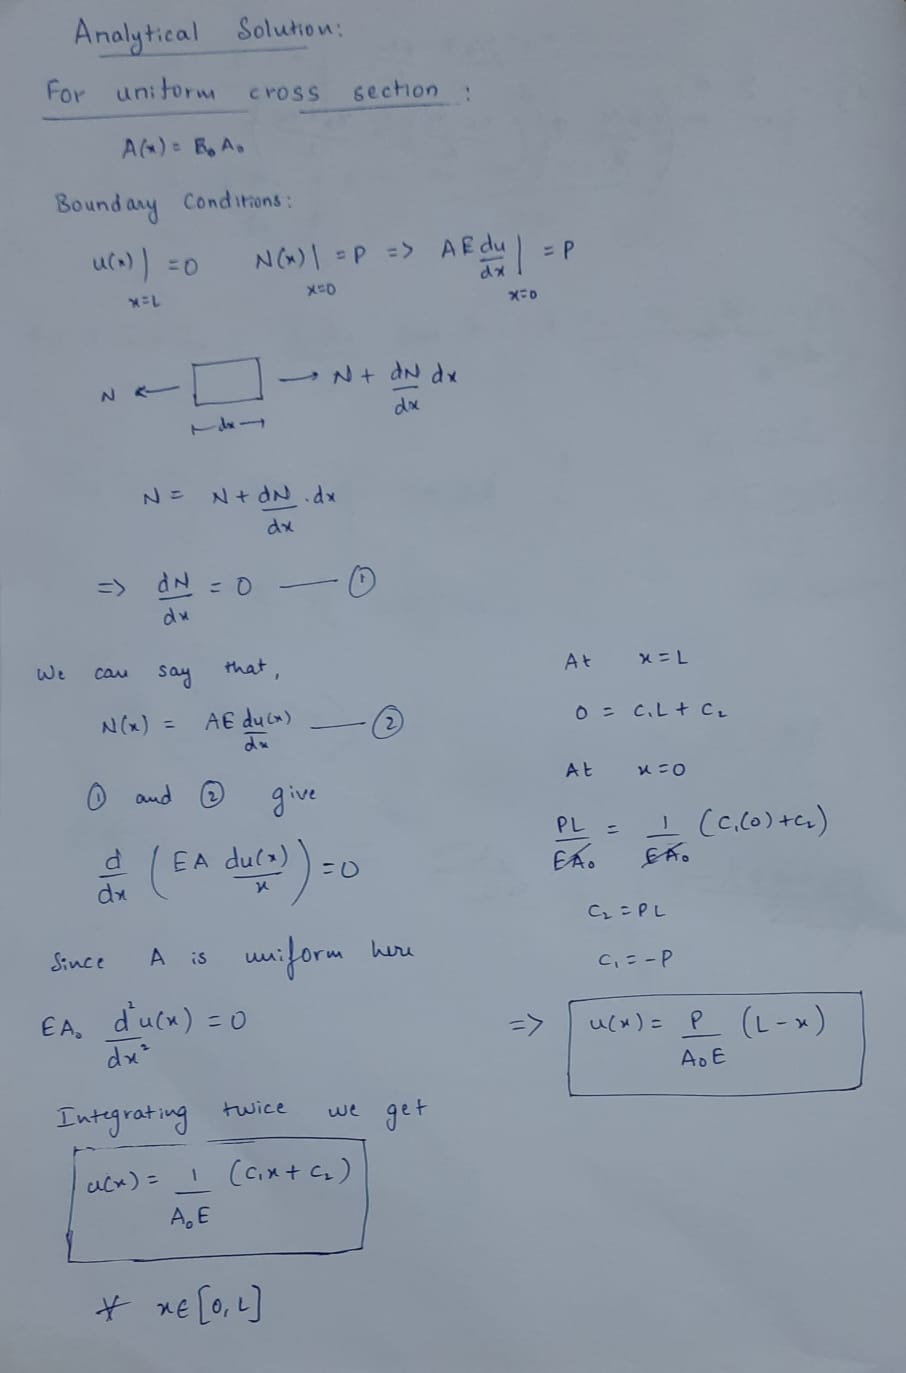 Analytical Solution:
For uniform cross section :
A(x) = A₀
Boundary Conditions:
u(x)| x=L = 0   N(x)| x=0 = P => AE du/dx | x=0 = P
N ← → N + dN/dx dx
dx
N = N + dN/dx . dx
=> dN/dx = 0 —— ①
We can say that,
N(x) = AE du(x)/dx —— ②
① and ② give
d/dx (EA du(x)/x) = 0
Since A is uniform here
EA₀ d²u(x)/dx² = 0
Integrating twice we get
u(x) = 1/A₀E (C₁x + C₂)
∀ x∈[0, L]
At x = L
0 = C₁L + C₂
At x=0
PL/EA₀ = 1/EA₀ (C₁(0) + C₂)
C₂ = PL
C₁ = -P
=> u(x) = P/A₀E (L - x)